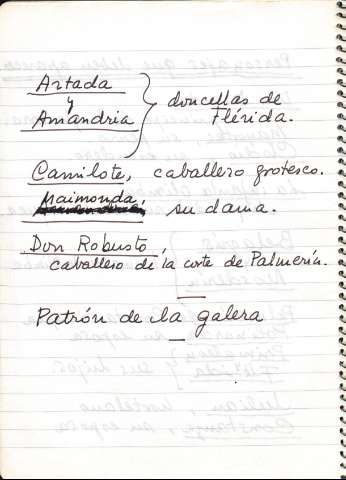 Artada
y
Amandria } doncellas de Flérida.
Camilote, caballero grotesco.
Maimonda, su dama.
Don Robusto,
caballero de la corte de Palmerín.
Patrón de la galera